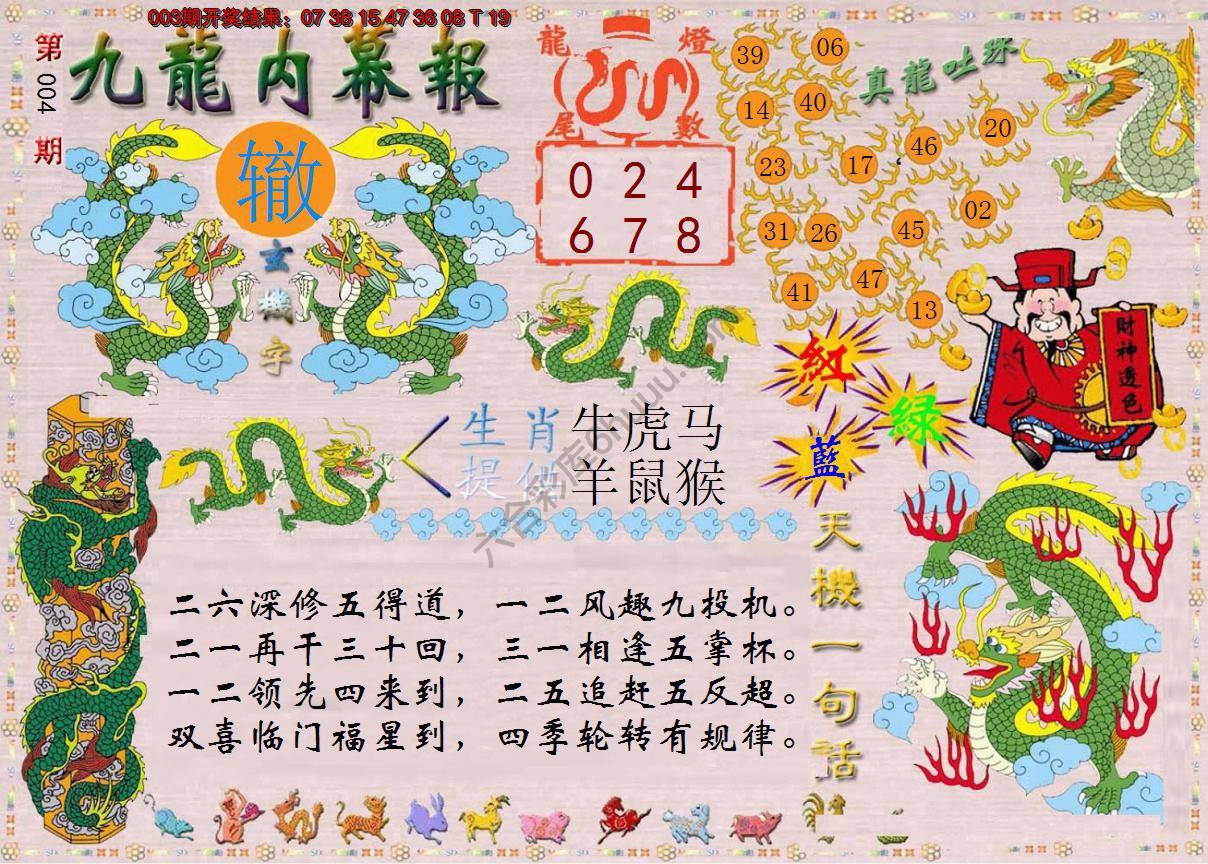 003期开奖结果：07 38 15 47 36 08 T 19
第004期
九龍内幕報
辙
玄機字
龍燈尾數
0 2 4
6 7 8
真龍吐珠
39 06
14 40
23 17 46 20
31 26 45 02
41 47 13
財神透色
紅
綠
藍
生肖 牛虎马
提供 羊鼠猴
天機一句話
二六深修五得道，一二风趣九投机。
二一再干三十回，三一相逢五掌杯。
一二领先四来到，二五追赶五反超。
双喜临门福星到，四季轮转有规律。